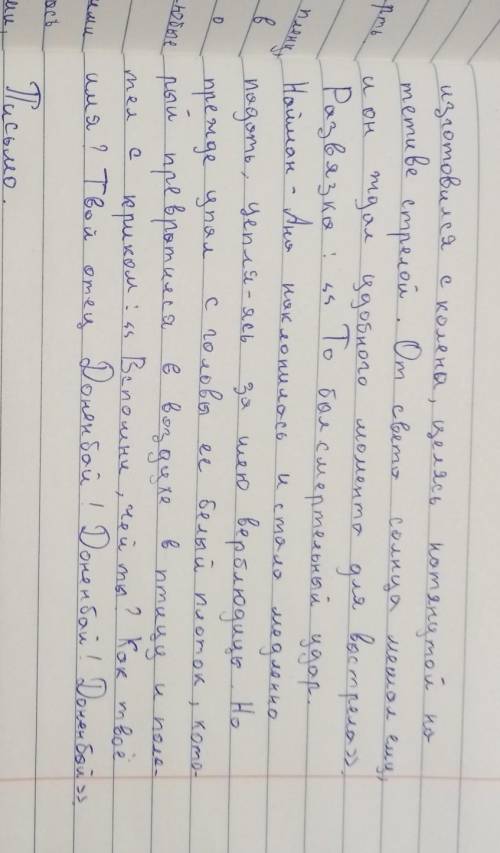 изготовился с колена, целясь натянутой на
тетиве стрелой. От света солнца мешал ему,
и он ждал удобного момента для выстрела».
Развязка: „То был смертельный удар.
Найман-Ана наклонилась и стала медленно
падать, цепля-ясь за шею верблюдицы. Но
прежде упал с головы ее белый платок, кото-
рый превратился в воздухе в птицу и поле-
тел с криком: „Вспомни, чей ты? Как твоё
имя? Твой отец Доненбай! Доненбай! Доненбай»
Письмо.
рть
плену,
в
о
любые
ими
ась
ми,